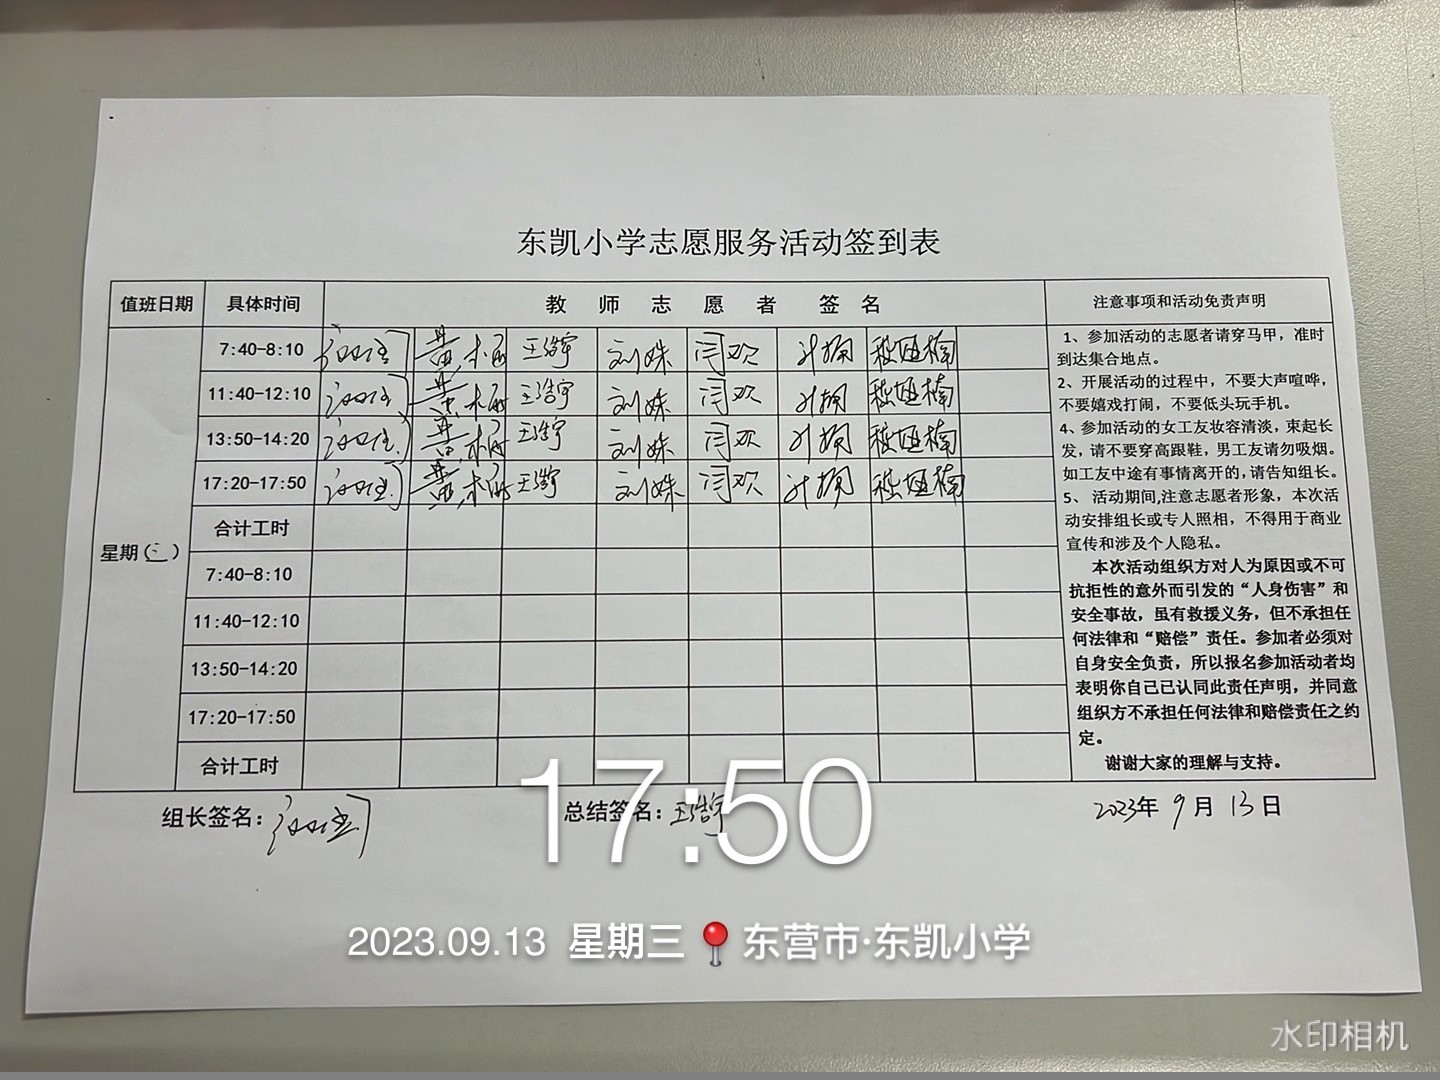 东凯小学志愿服务活动签到表
值班日期 具体时间 教师志愿者签名 注意事项和活动免责声明
星期(三)
7:40-8:10 王浩宇 刘姝 闫欢
11:40-12:10 王浩宇 刘姝 闫欢
13:50-14:20 王浩宇 刘姝 闫欢
17:20-17:50 王浩宇 刘姝 闫欢
合计工时
7:40-8:10
11:40-12:10
13:50-14:20
17:20-17:50
合计工时
1、参加活动的志愿者请穿马甲，准时
到达集合地点。
2、开展活动的过程中，不要大声喧哗，
不要嬉戏打闹，不要低头玩手机。
4、参加活动的女工友妆容清淡，束起长
发，请不要穿高跟鞋，男工友请勿吸烟。
如工友中途有事情离开的，请告知组长。
5、 活动期间,注意志愿者形象，本次活
动安排组长或专人照相，不得用于商业
宣传和涉及个人隐私。
本次活动组织方对人为原因或不可
抗拒性的意外而引发的“人身伤害”和
安全事故，虽有救援义务，但不承担任
何法律和“赔偿”责任。参加者必须对
自身安全负责，所以报名参加活动者均
表明你自己已认同此责任声明，并同意
组织方不承担任何法律和赔偿责任之约
定。
谢谢大家的理解与支持。
组长签名： 总结签名：王浩宇 2023年 9月 13日
17:50
2023.09.13 星期三 东营市·东凯小学
水印相机